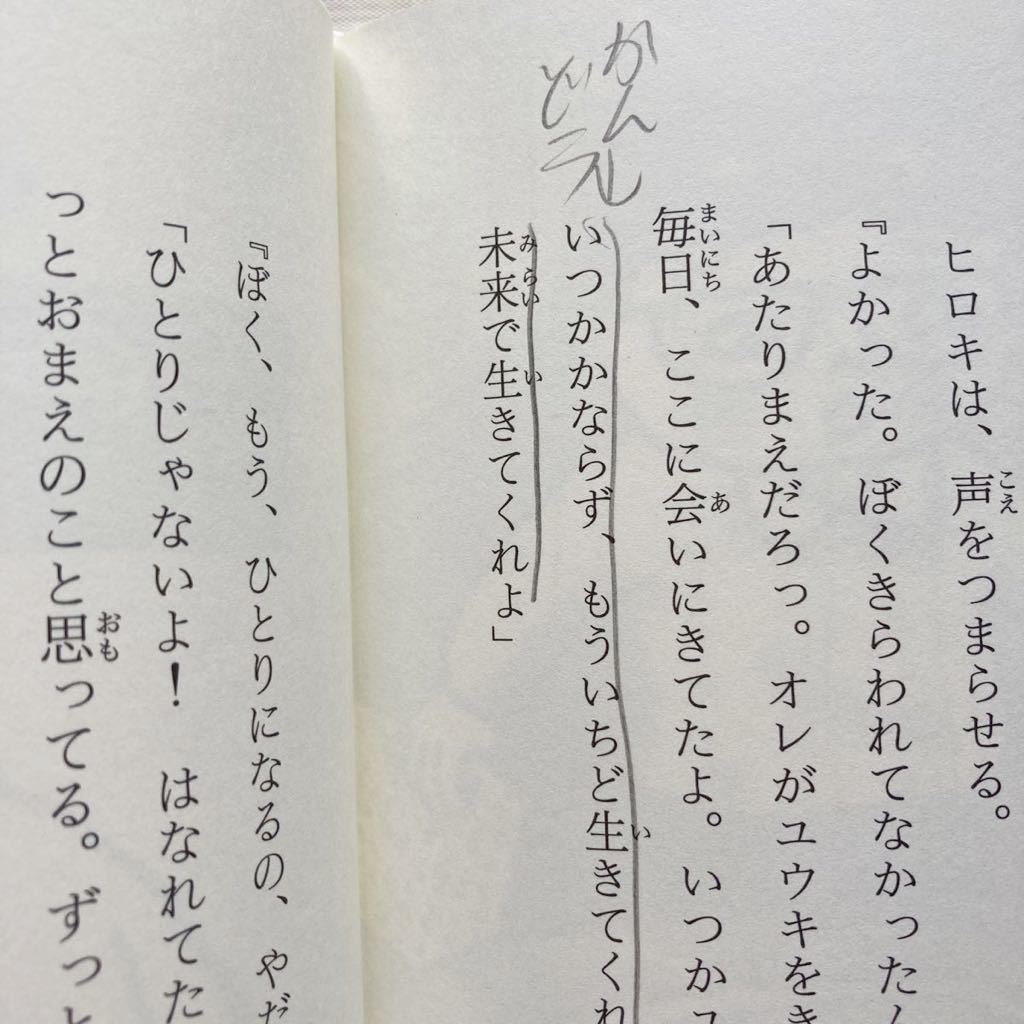 かんし
どう
ヒロキは、声をつまらせる。
『よかった。ぼくきらわれてなかったん
「あたりまえだろっ。オレがユウキをき
毎日、ここに会いにきてたよ。いつかユ
いつかかならず、もういちど生きてくれ
未来で生きてくれよ」
『ぼく、もう、ひとりになるの、やだ
「ひとりじゃないよ！　はなれてた
っとおまえのこと思ってる。ずっと